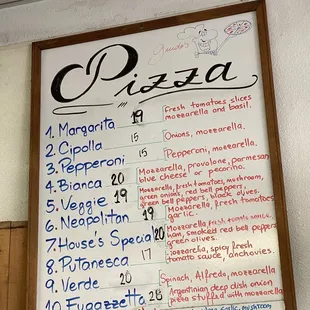 Guido's
Pizza
1. Margarita 19 Fresh tomatoes slices
mozzarella and basil.
2. Cipolla 15 Onions, mozzarella.
3. Pepperoni 15 Pepperoni, mozzarella.
4. Bianca 20 Mozzarella, provolone, parmesan
blue cheese or pecorino.
5. Veggie 19 Mozzarella, fresh tomatoes, mushroom,
green onions, red bell peppers,
green bell peppers, black olives.
6. Neapolitan 19 Mozzarella, fresh tomatoes
garlic.
7. House's Special 20 Mozzarella fresh tomato
ham, smoked red bell peppers
green olives.
8. Putanesca 17 Mozzarella, spicy fresh
tomato sauce, anchovies.
9. Verde 20 Spinach, Alfredo, mozzarella
10 Fugazzetta 28 Argentinian deep dish onion
pizza stuffed with mozzarella